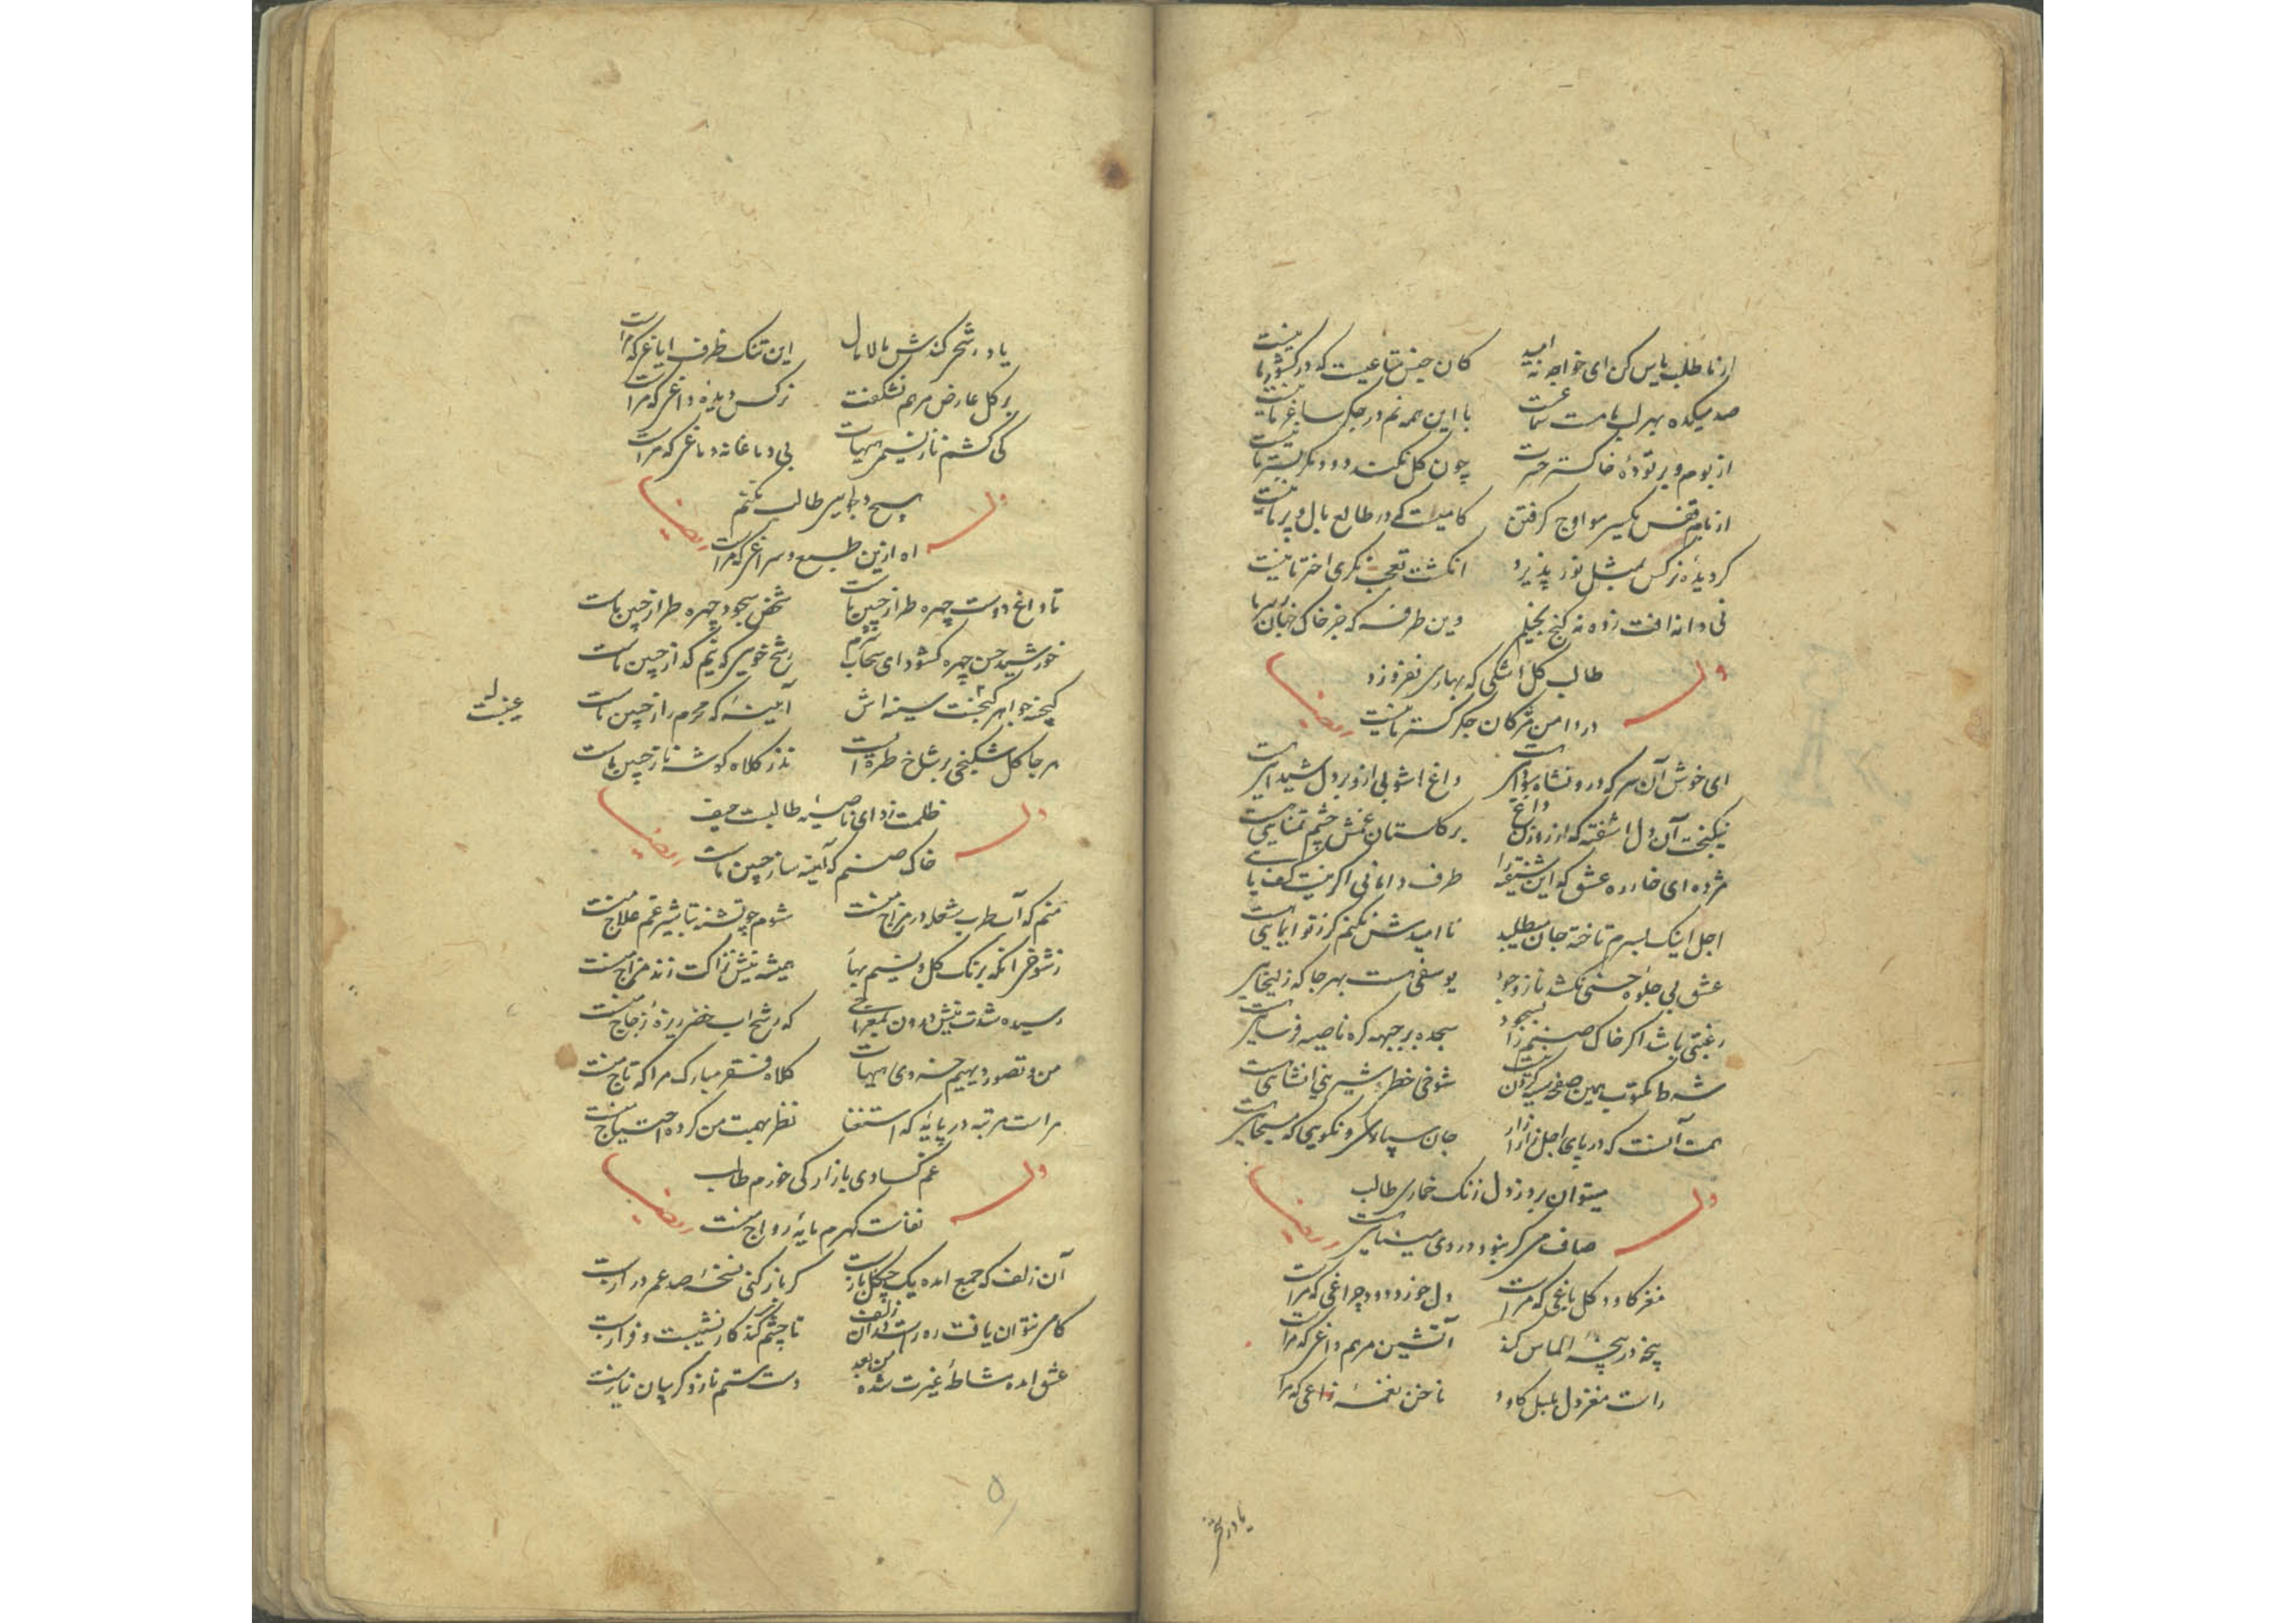 از ما طلب یاس کن ای خواجه نه امید کان جنس متاعیست که در کشور ما نیست
صد میکده بهر لب ما مست با این همه نم در جگر ساغر ما نیست
از بوم و بر تودهٔ خاکستر حسرت چون گل نکند دود مگر بستر ما نیست
از بام قفس یکسر مو اوج گرفتن کامیست که در طالع بال و پر ما نیست
گر دیده نرگس بمثل نور پذیرد انگشت تعجب نگری اختر ما نیست
نی دانه افت زده نه کنج بخیلم وین طرفه که جز خاک
طالب گل اشکی که بهاری بفروزد
وله
در دامن مژگان جگر گستر ما نیست
ایضا
ای خوش آن سر که درو نشاه سودایی هست داغ اشوبی ازو بر دل شیدایی هست
نیکبخت آن دل اشفته که از روزن داغ بر گلستان غمش چشم تمنایی هست
مژده ای خار ره عشق که این شیفته را طرف دامانی اگر نیست کف پایی هست
اجل اینک بسرم تاخته جان میطلبد نا امیدش نکنم گر ز تو ایمایی هست
عشق بی جلوه حسنی نکشد ناز وجود یوسفی هست بهر جا که زلیخایی هست
رغبتی باشد اگر خاک صنم را بسجود سجده بر جبهه گره ناصیه فرسایی هست
شوخی خط شیرینی انشایی هست
همت آنست که در پای اجل زار زار جان سپاری و نگویی که مسیحایی هست
میتوان برد ز دل زنک خماری طالب
وله
صاف می گر نبود دردی مینایی هست
ایضا
مغز کاود گل باغی که مراست دل خورد دود چراغی که مراست
پنجه در پنجهٔ الماس کند آتشین مرهم داغی که مراست
راست مغز دل بلبل کاود ناخن نغمهٔ زاغی که مراست
یاد در شحر
یاد کندش مالامال این تنک ظرف ایاغی که مراست
بر گل عارض مرهم نشکفت نرگس دیدهٔ داغی که مراست
کی کشم ناز نسیم هیهات بی دماغانه دماغی که مراست
هیچ دلجویی طالب نکنم
وله
اه ازین طبع و سراغی که مراست
ایضا
تا داغ دوست چهره طراز جبین ماست شخص سجود چهره طراز جبین ماست
خورشید حسن چهره گشود ای سحاب شرم رشح خویی که نم گداز جبین ماست
گنجینه جواهر سینه اش آیینهٔ که محرم راز جبین ماست
غیبست
هر جا گل شکنجی بر شاخ طره ایست نذر کلاه گوشه ناز جبین ماست
ظلمت زدای ناصیهٔ طالبست حیف
وله
خاک صنم که آینه ساز جبین ماست
ایضا
منم که آب طرب شعله در مزاج منست شوم چو تشنه تباشیر غم علاج منست
ز شوخی انکه برنک گل و نسیم بهار همیشه نیش نزاکت زند مزاج منست
که رشح اب خضر ریزهٔ زجاج منست
من و تصور دیهیم خسروی هیهات کلاه فقر مبارک مرا که تاج منست
مراست مرتبه در پایهٔ که استغنا نظر بهمت من کرده احتیاج منست
غم کسادی بازار کی خورم طالب
وله
نفاست گهرم مایهٔ رواج منست
ایضا
آن زلف که جمع امده یک چنگل بازست گر باز کنی نسخهٔ صد عمر درازست
کامی نتوان یافت ز همراستی زلف تا چشم کند کار نشیبست و فرازست
عشق امده مشاطهٔ غیرت شده من بعد دست ستم ناز و گریبان نیازست